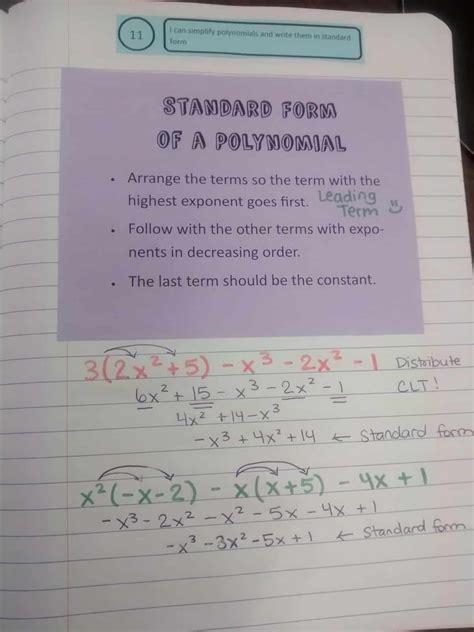 11
I can simplify polynomials and write them in standard
form
STANDARD FORM
OF A POLYNOMIAL
• Arrange the terms so the term with the
highest exponent goes first. Leading
Term
• Follow with the other terms with expo-
nents in decreasing order.
• The last term should be the constant.
3(2x²+5) - x³ - 2x² - 1 Distribute
6x² + 15 - x³ - 2x² - 1 CLT!
4x² + 14 - x³
-x³ + 4x² + 14 ← Standard form
x²(-x-2) - x(x+5) - 4x + 1
-x³ - 2x² - x² - 5x - 4x + 1
-x³ - 3x² - 5x + 1 ← Standard form